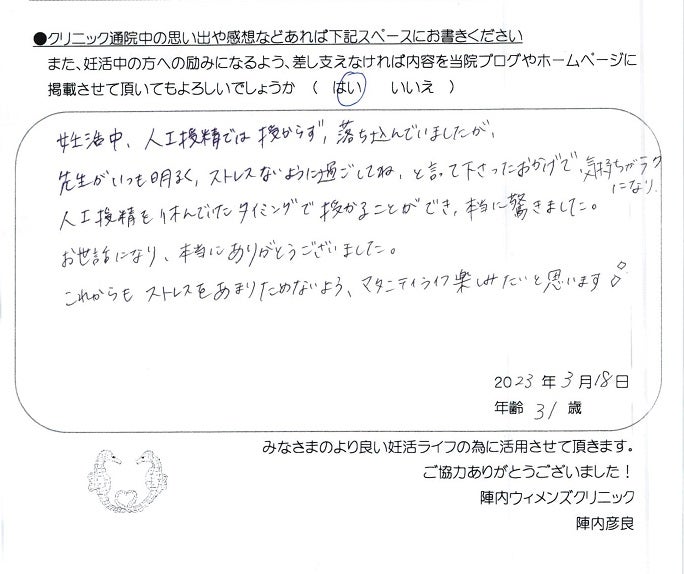 ●クリニック通院中の思い出や感想などあれば下記スペースにお書きください
また、妊活中の方への励みになるよう、差し支えなければ内容を当院ブログやホームページに
掲載させて頂いてもよろしいでしょうか （ はい いいえ ）
妊活中、人工授精では授からず、落ち込んでいましたが、
先生がいつも明るく、ストレスないように過ごしてね、と言って下さったおかげで、気持ちがラクになり、
人工授精を休んでいたタイミングで授かることができ、本当に驚きました。
お世話になり、本当にありがとうございました。
これからもストレスをあまりためないよう、マタニティライフ楽しみたいと思います
2023 年 3 月 18 日
年齢 31 歳
みなさまのより良い妊活ライフの為に活用させて頂きます。
ご協力ありがとうございました！
陣内ウィメンズクリニック
陣内彦良